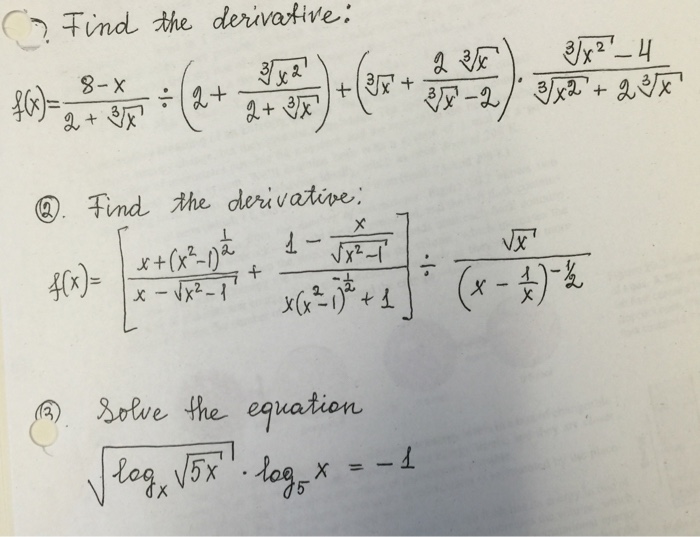 . Find the derivative:
f(x) = (8-x)/(2 + ∛x) ÷ (2 + ∛x²/(2 + ∛x)) + (∛x + 2∛x/(∛x - 2)) · (∛x² - 4)/(∛x² + 2∛x)
②. Find the derivative:
f(x) = [(x+(x²-1)^(1/2))/(x - √(x²-1)) + (1 - x/√(x²-1))/(x(x²-1)^(-1/2) + 1)] ÷ √x/(x - 1/x)^(-1/2)
③. Solve the equation
√(log_x √(5x)) · log_5 x = -1